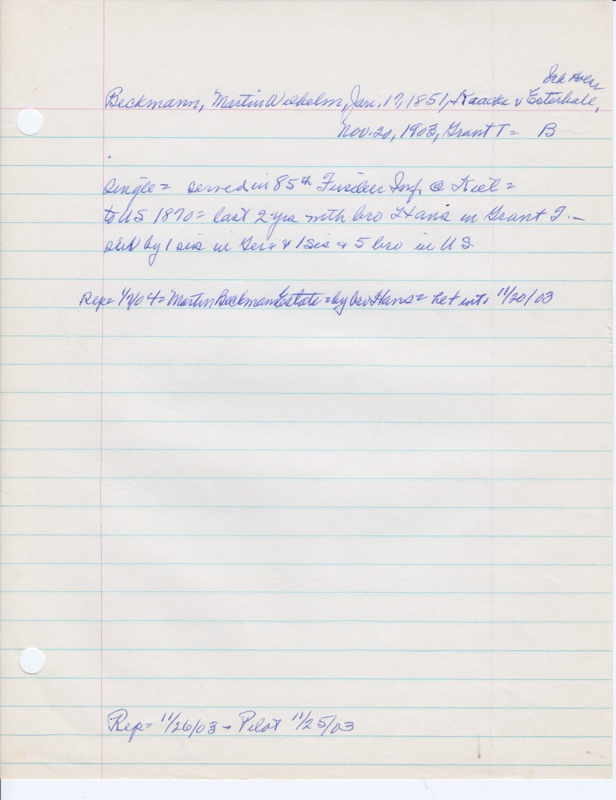 Sch Hols
Beckmann, Martin Wilhelm, Jan. 17, 1851, Haacke v Esterhale,
Nov. 20, 1903, Grant T = B
single = served in 85th Fusilier Inf. @ Kiel =
to US 1870 = last 2 yrs with bro Hans in Grant T. -
survd by 1 sis in Ger. & 1 sis & 5 bro in U.S.
Rep = 1/7/04 = Martin Beckman Estate = by bro Hans = Let int. 11/20/03
Rep = 11/26/03 - Pilot 11/25/03